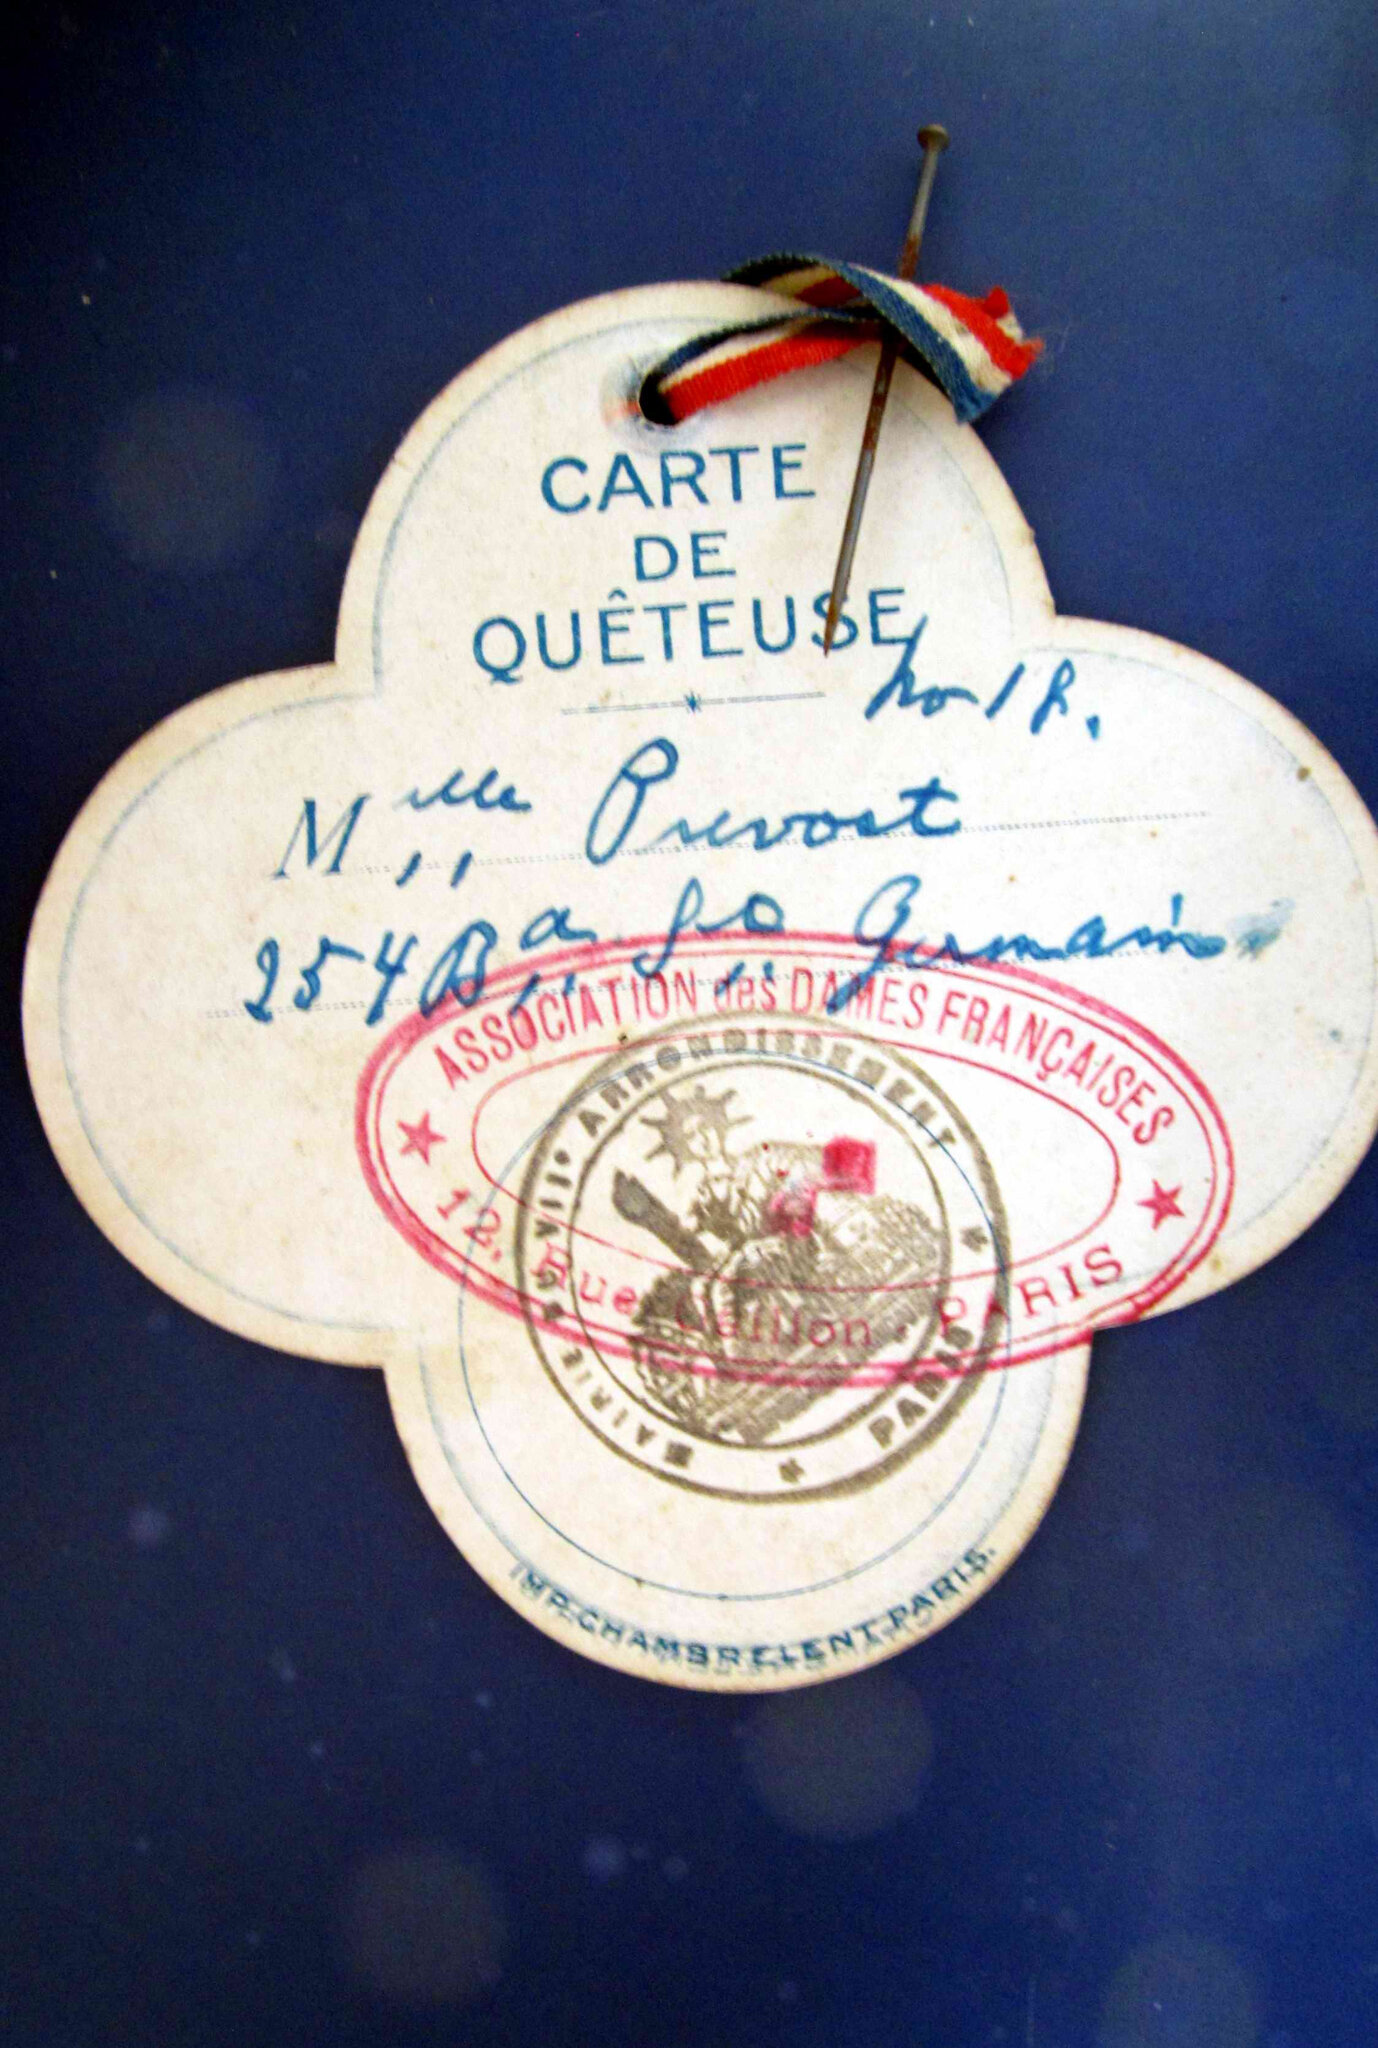 CARTE
DE
QUÊTEUSE
No 18.
Mlle Prevost
254 Bd St Germain
ASSOCIATION des DAMES FRANÇAISES
12, Rue Gaillon. PARIS
MAIRIE DU VIIe ARRONDISSEMENT
PARIS
IMP. CHAMBRELENT. PARIS.